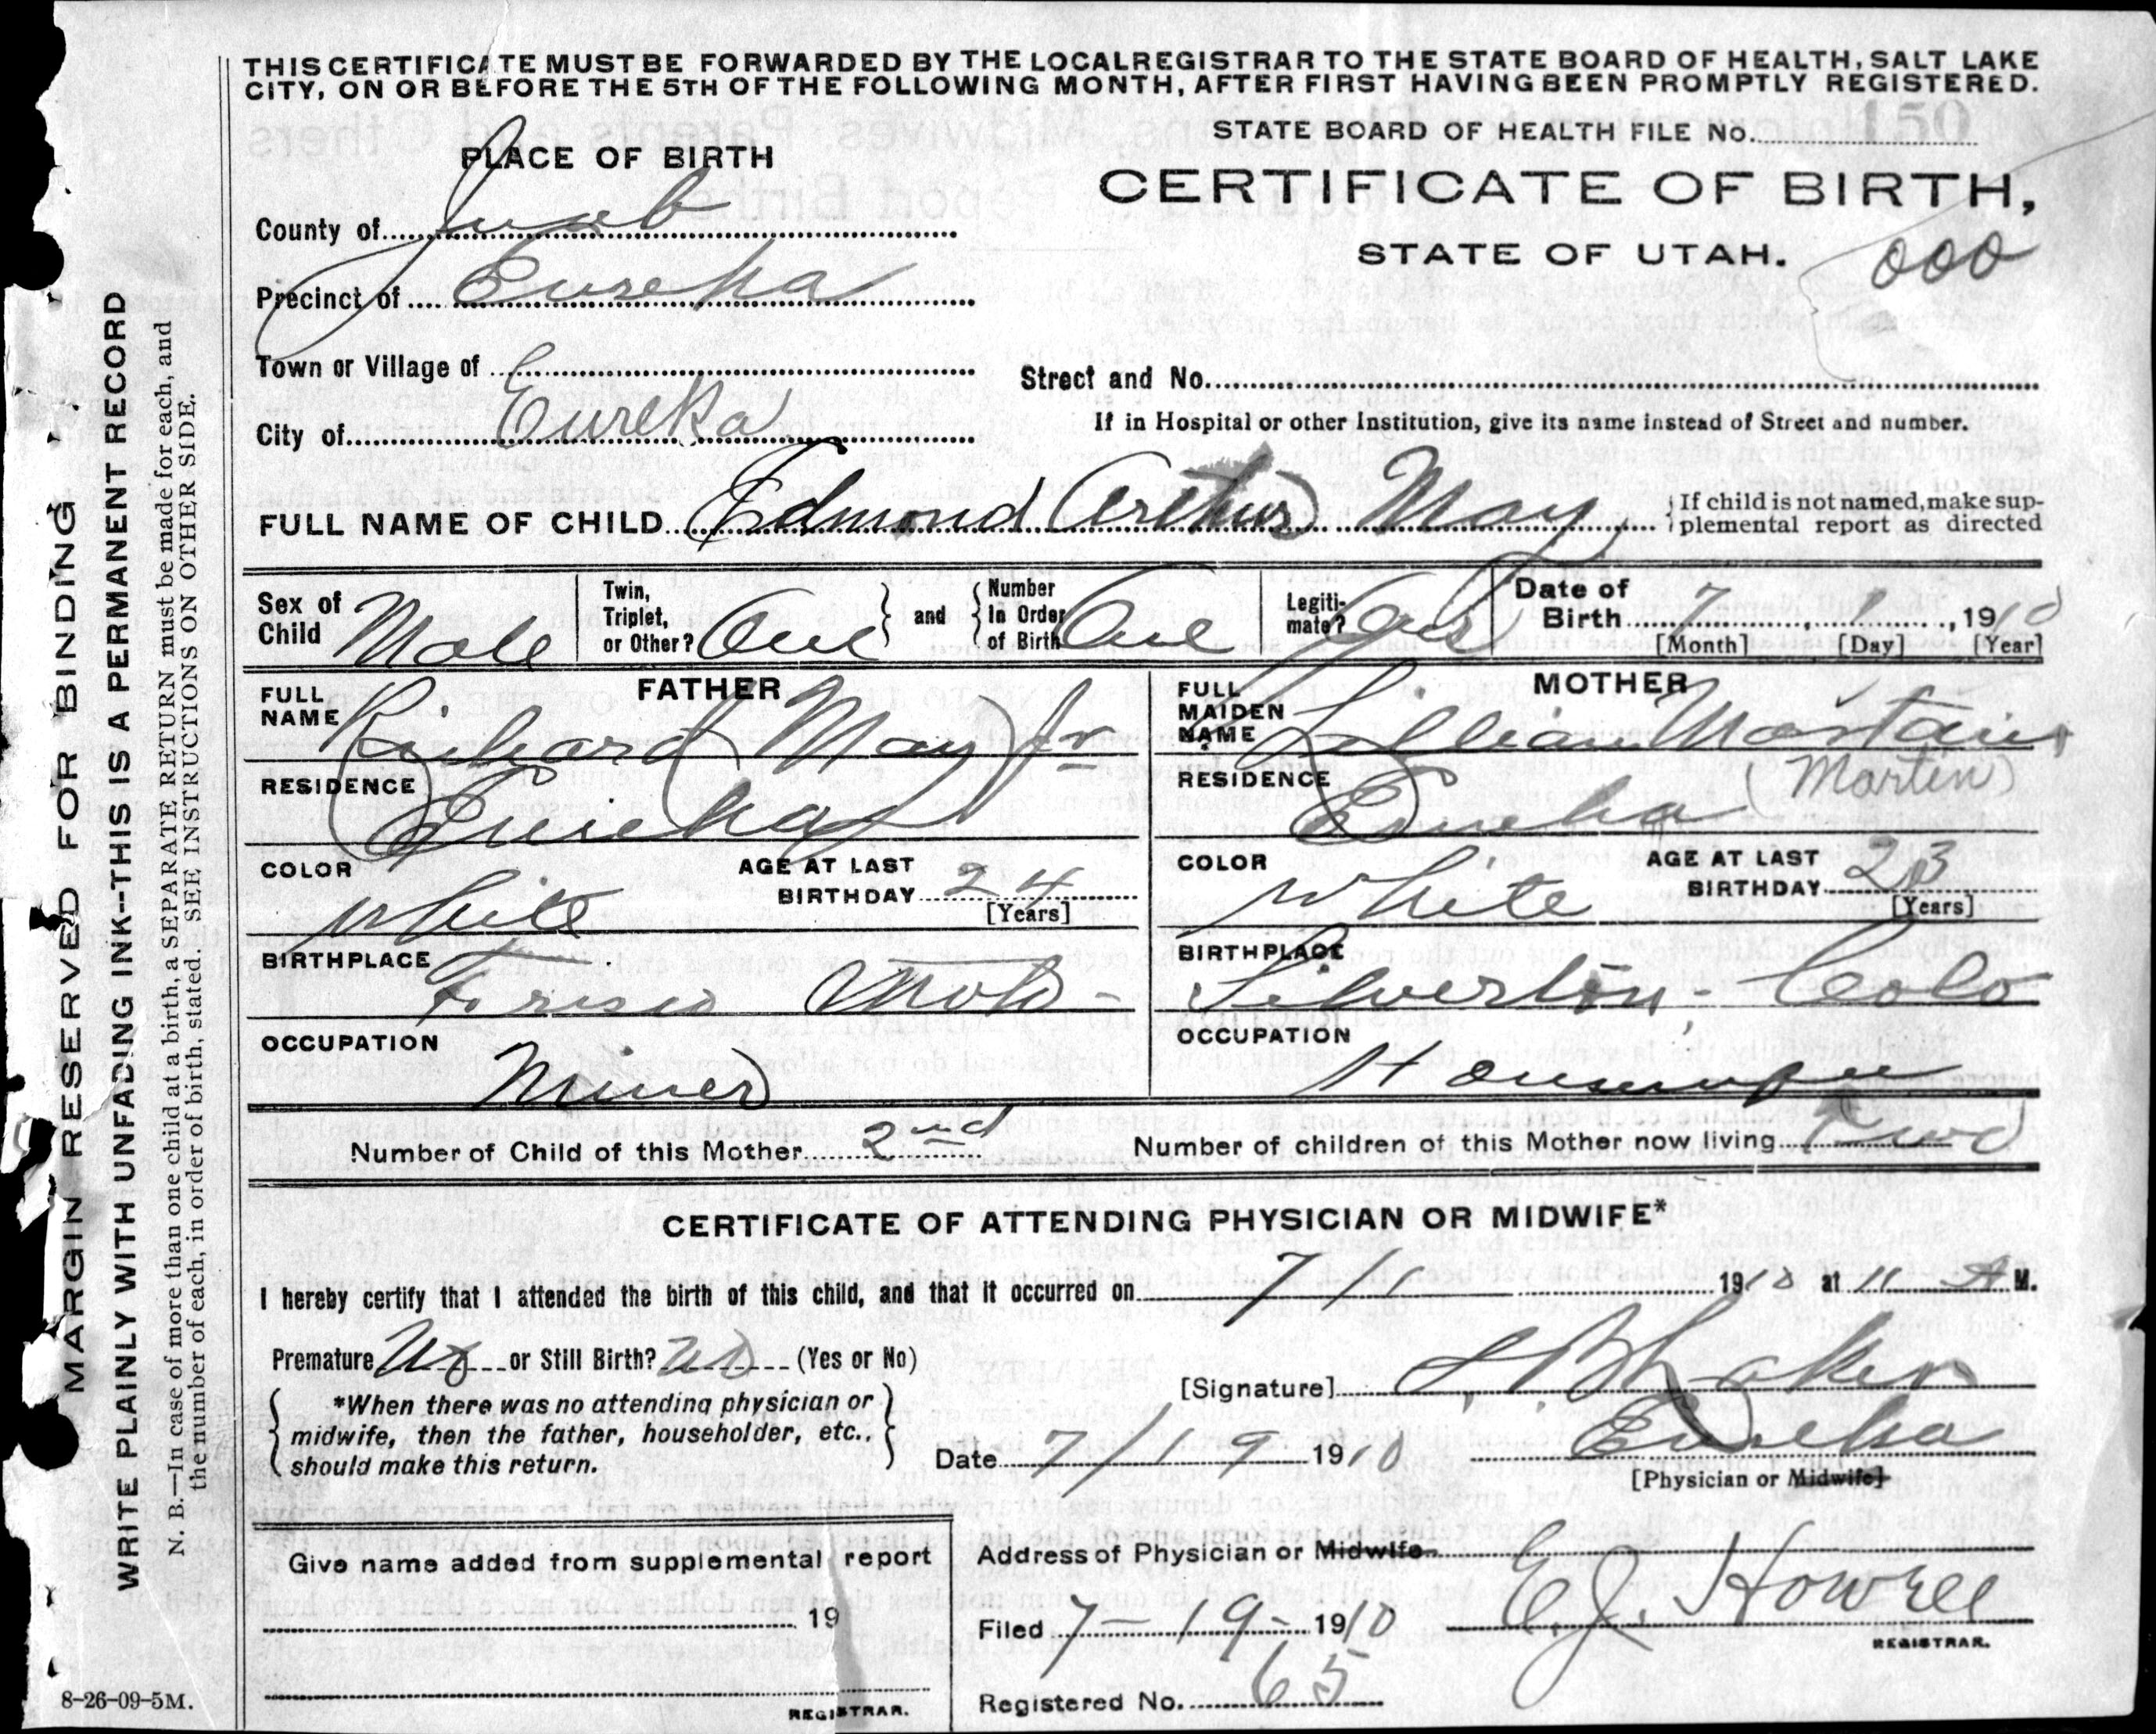 THIS CERTIFICATE MUST BE FORWARDED BY THE LOCAL REGISTRAR TO THE STATE BOARD OF HEALTH, SALT LAKE
CITY, ON OR BEFORE THE 5TH OF THE FOLLOWING MONTH, AFTER FIRST HAVING BEEN PROMPTLY REGISTERED.
STATE BOARD OF HEALTH FILE No. 150
PLACE OF BIRTH
CERTIFICATE OF BIRTH,
STATE OF UTAH. 000
County of Juab
Precinct of Eureka
Town or Village of
Street and No.
City of Eureka
If in Hospital or other Institution, give its name instead of Street and number.
FULL NAME OF CHILD Edmond Arthur May
If child is not named, make sup-
plemental report as directed
Sex of Child Male
Twin, Triplet, or Other? One
and
Number In Order of Birth One
Legiti-mate? Yes
Date of Birth 7, 1, 1910
[Month] [Day] [Year]
FATHER
FULL NAME Richard May Jr
RESIDENCE Eureka
COLOR White
AGE AT LAST BIRTHDAY 24
[Years]
BIRTHPLACE Frisco
OCCUPATION Miner
MOTHER
FULL MAIDEN NAME Lillian
(Martin)
RESIDENCE Eureka
COLOR White
AGE AT LAST BIRTHDAY 23
[Years]
BIRTHPLACE Silverton - Colo
OCCUPATION Housewife
Number of Child of this Mother 2nd
Number of children of this Mother now living Two
CERTIFICATE OF ATTENDING PHYSICIAN OR MIDWIFE*
I hereby certify that I attended the birth of this child, and that it occurred on 7/1 1910 at 11 A M.
Premature No or Still Birth? No (Yes or No)
*When there was no attending physician or
midwife, then the father, householder, etc.,
should make this return.
[Signature]
Eureka
Date 7/19 1910
[Physician or Midwife]
Give name added from supplemental report
19
REGISTRAR.
Address of Physician or Midwife
Filed 7-19-1910 E.J. Howell
REGISTRAR.
Registered No. 65
MARGIN RESERVED FOR BINDING
WRITE PLAINLY WITH UNFADING INK--THIS IS A PERMANENT RECORD
N. B.—In case of more than one child at a birth, a SEPARATE RETURN must be made for each, and
the number of each, in order of birth, stated. SEE INSTRUCTIONS ON OTHER SIDE.
8-26-09-5M.